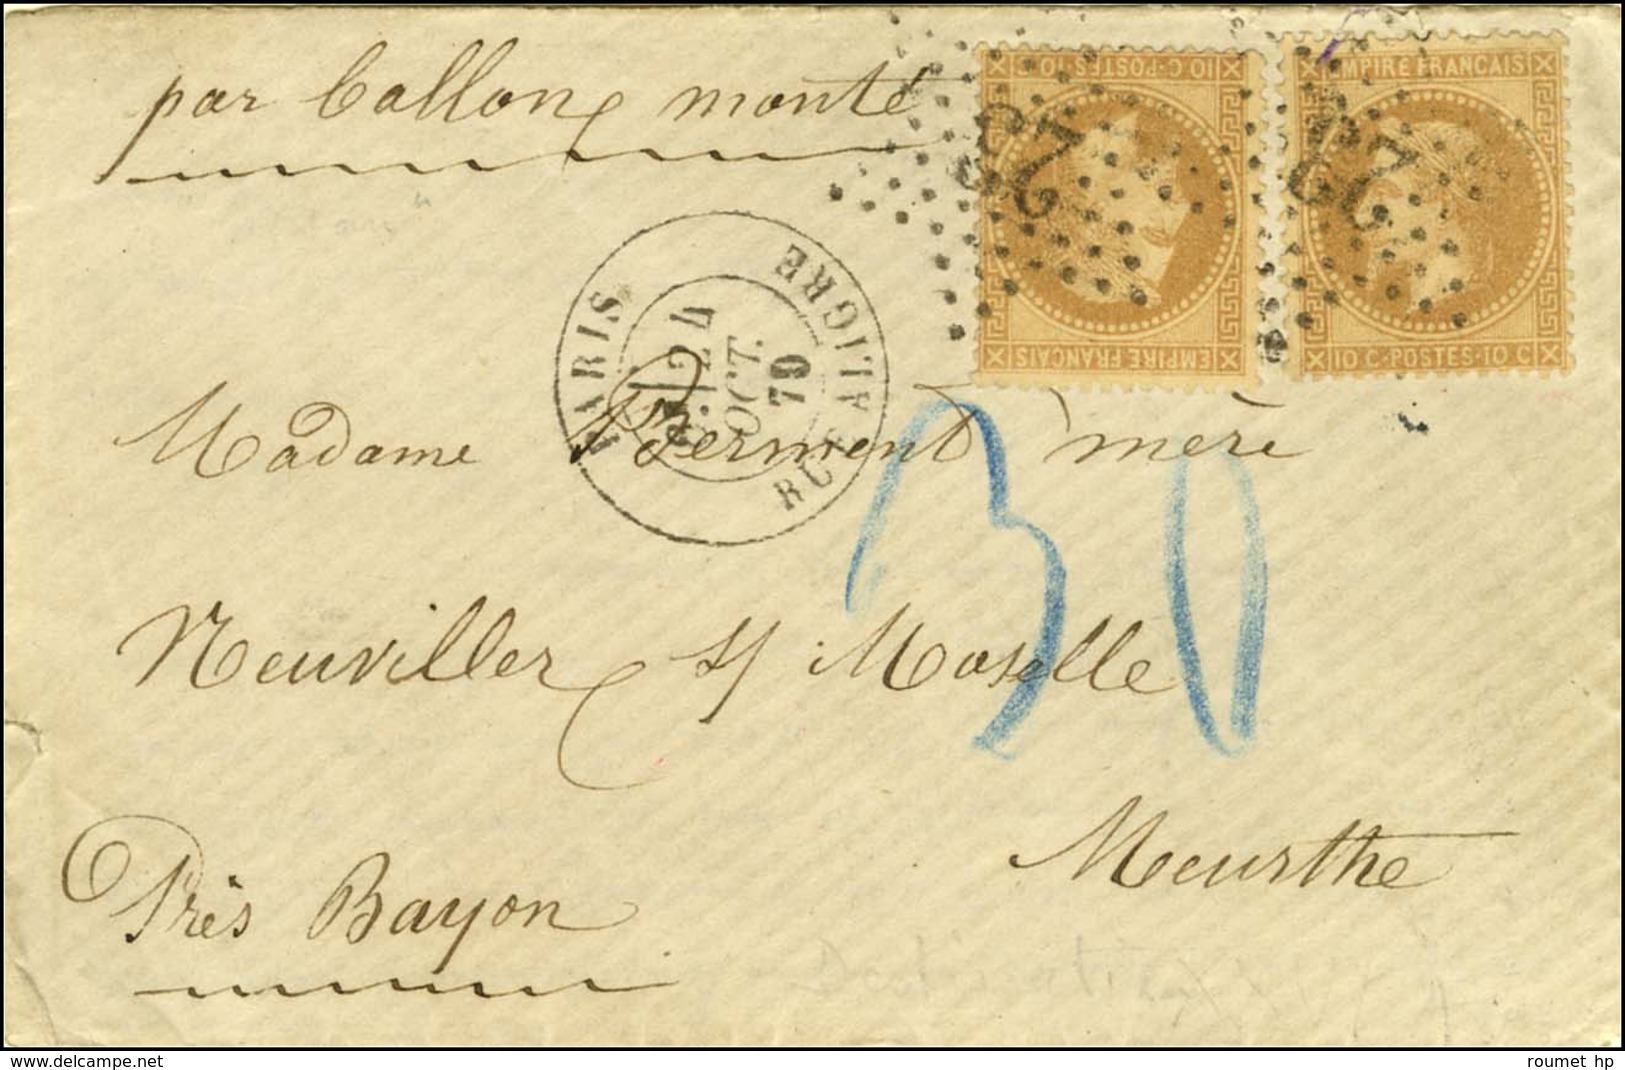 par ballon monté
10 C·POSTES·10 C
EMPIRE FRANÇAIS
EMPIRE FRANÇAIS
10 C·POSTES·10 C
PARIS
24
OCT.
70
RUE ALIGRE
Madame Ferment mère
30
Neuviller s/ Moselle
Meurthe
Près Bayon
roumet hp